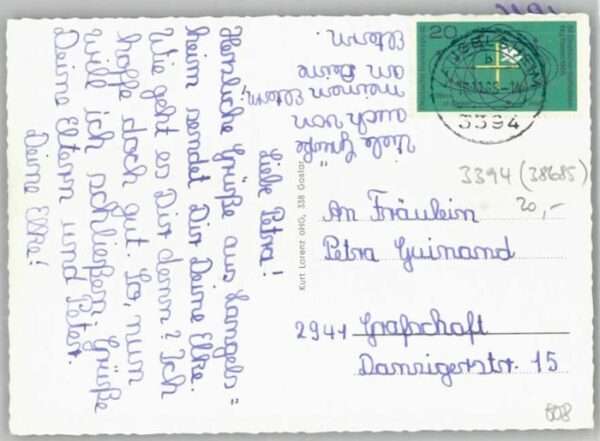 Liebe Petra!
Herzliche Grüße aus Langels=
heim sendet Dir Deine Elke.
Wie geht es Dir denn? Ich
hoffe doch gut. So, nun
will ich schließen. Grüße
Deine Eltern und Peter.
Deine Elke!
Viele Grüße
auch von
meinen Eltern,
an Deine
Eltern.
Kurt Lorenz oHG, 338 Goslar
20
3394
3394 (38685)
20,-
An Fräulein
Petra Guinand
2941 Grafschaft
Danzigerstr. 15
808